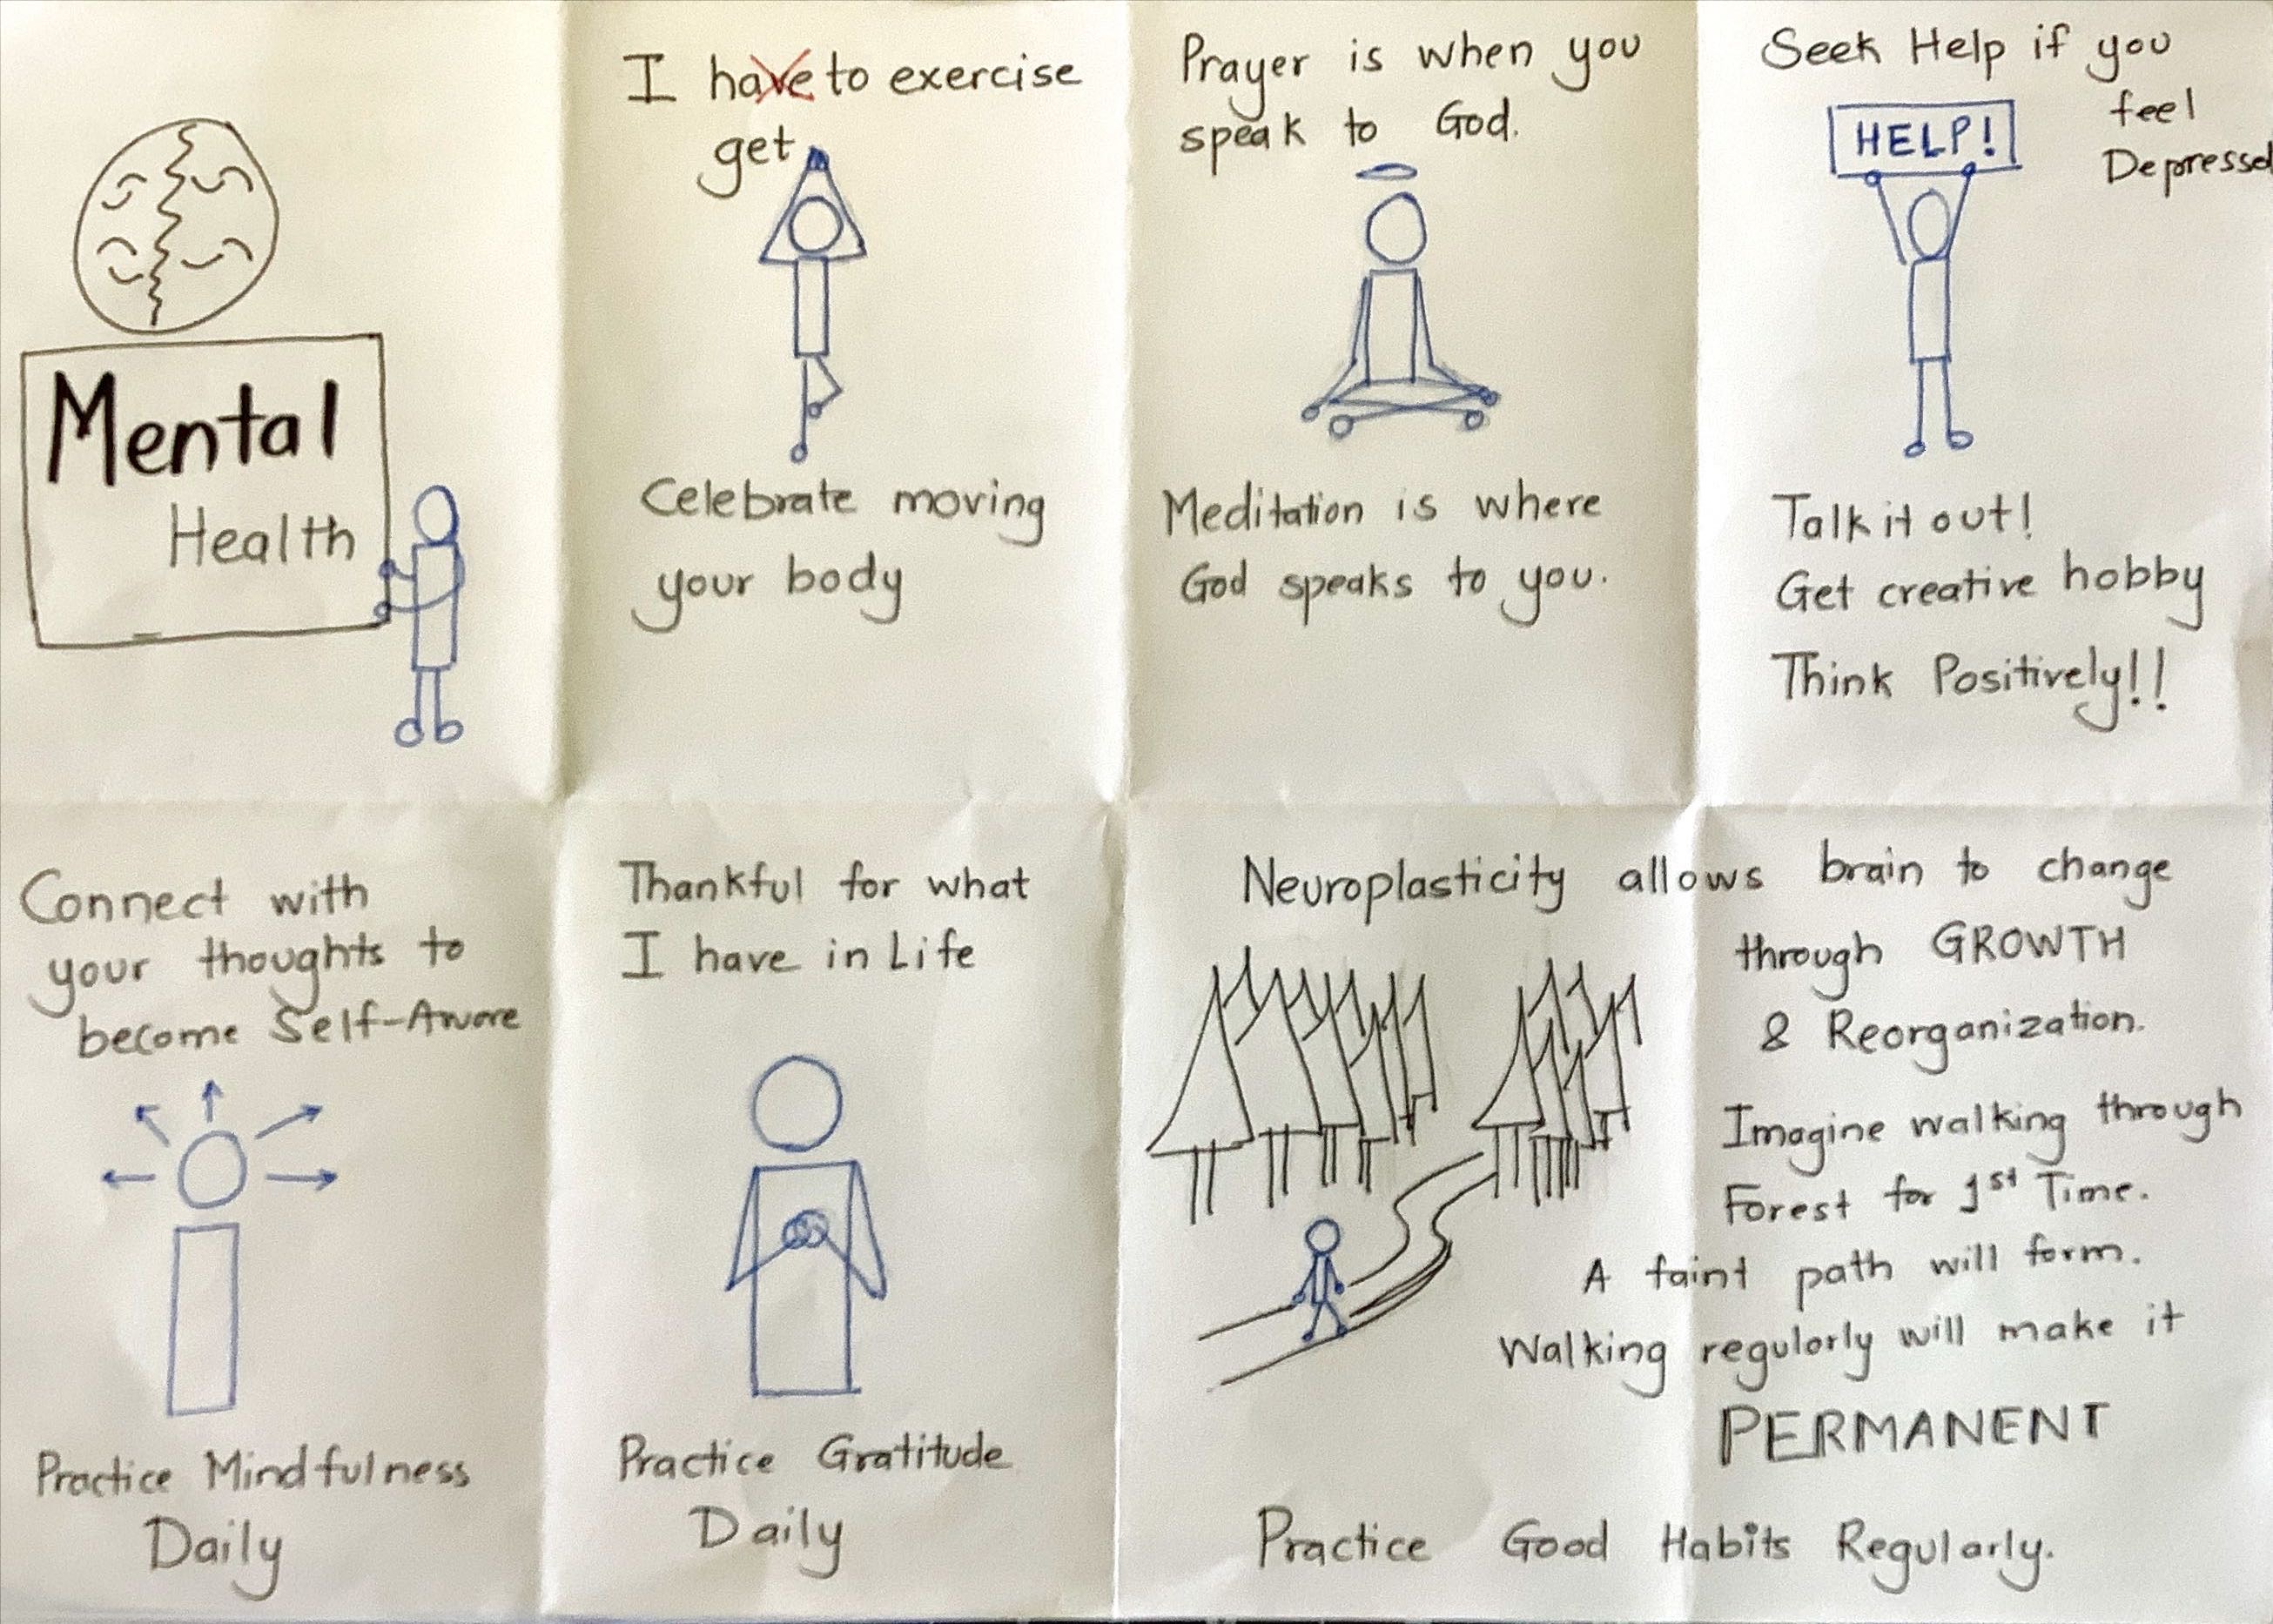 Mental
Health
I have to exercise
get
Celebrate moving
your body
Prayer is when you
speak to God.
Meditation is where
God speaks to you.
Seek Help if you
feel
Depressed
HELP!
Talk it out!
Get creative hobby
Think Positively!!
Connect with
your thoughts to
become Self-Aware
Practice Mindfulness
Daily
Thankful for what
I have in Life
Practice Gratitude
Daily
Neuroplasticity allows brain to change
through GROWTH
& Reorganization.
Imagine walking through
Forest for 1st Time.
A faint path will form.
Walking regularly will make it
PERMANENT
Practice Good Habits Regularly.